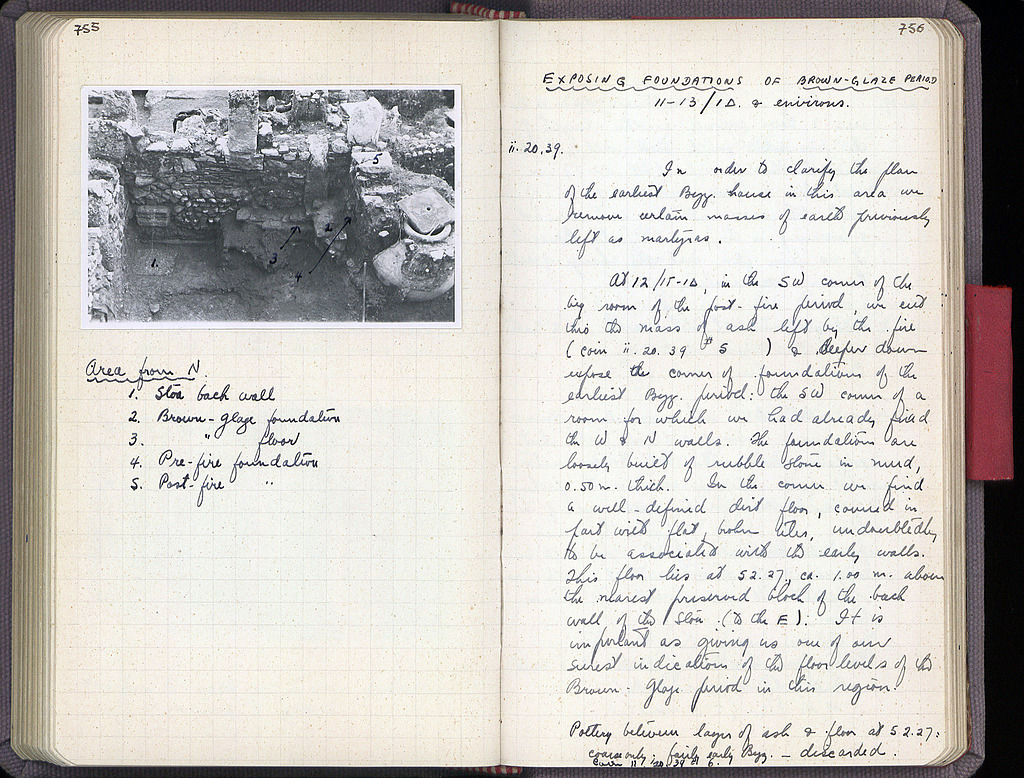 755
1.
2
3
4
5
Area from N.
1. Stoa back wall
2. Brown-glaze foundation
3. " floor
4. Pre-fire foundation
5. Post-fire "
756
EXPOSING FOUNDATIONS OF BROWN-GLAZE PERIOD
11-13/1Δ & environs.
ii.20.39.
In order to clarify the plan
of the earliest Byz. house in this area we
remove certain masses of earth previously
left as martyras.
At 12/15-1Δ, in the SW corner of the
big room of the post-fire period, we cut
thro the mass of ash left by the fire
(coin ii.20.39 #5 ) & deeper down
expose the corner of foundations of the
earliest Byz. period: the SW corner of a
room for which we had already found
the W & N walls. The foundations are
loosely built of rubble stone in mud,
0.50 m. thick. In the corner we find
a well-defined dirt floor, covered in
part with flat, broken tiles, undoubtedly
to be associated with the early walls.
This floor lies at 52.27, ca. 1.00 m. above
the nearest preserved block of the back
wall of the Stoa (to the E). It is
important as giving us one of our
surest indications of the floor levels of the
Brown-Glaze period in this region.
Pottery between layer of ash & floor at 52.27:
coarse only; fairly early Byz. — discarded.
Coin ii 20 39 # 6.